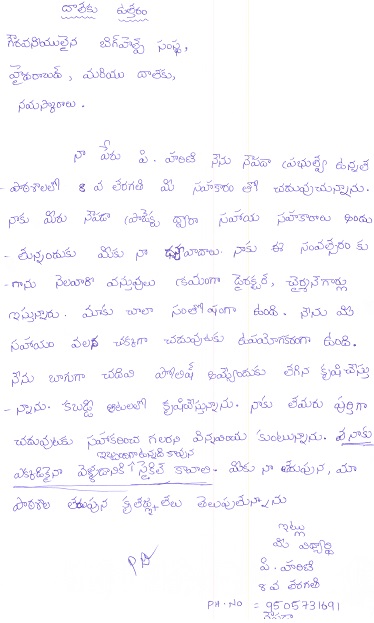 దాతకు ఉత్తరం
గౌరవనీయులైన బిగ్‌హెల్ప్ సంస్థ,
హైదరాబాద్, మరియు దాతకు,
నమస్కారాలు.
నా పేరు పి. హారతి నేను నెపడా ప్రభుత్వ ఉన్నత
- పాఠశాలలో 8 వ తరగతి మీ సహకారం తో చదువుచున్నాను.
నాకు మీరు నెపడా ప్రాజెక్ట్ ద్వారా సహాయ సహకారాలు అందు
- తున్నందుకు మీకు నా ధన్యవాదాలు. నాకు ఈ సంవత్సరం కు
- గాను నెలవారీ వస్తువులు క్రమంగా డైరక్టర్, చైర్మన్ గార్లు
ఇస్తున్నారు. మాకు చాలా సంతోషంగా ఉంది. నేను మీ
సహాయం వలన చక్కగా చదువుటకు ఉపయోగకరంగా ఉంది.
నేను బాగుగా చదివి పోలీష్ అయ్యేందుకు తగిన కృషి చేస్తు
- న్నాను. కబడ్డీ ఆటలలో కృషిచేస్తున్నాను. నాకు తమరు పూర్తిగా
చదువుటకు సహకరించ గలరని విన్నవించు కుంటున్నాను. నాకు
ఇబ్బందిగా ఉన్నది కావున
ఎక్కడికైనా వెళ్ళడానికి సైకిల్ కావాలి. మీకు నా తరుపున, మా
పాఠశాల తరుపున కృతజ్ఞతలు తెలుపుతున్నాను
ఇట్లు
మీ విద్యార్థి
పి. హారతి
8 వ తరగతి
PH.NO = 9505731691
నెపడా